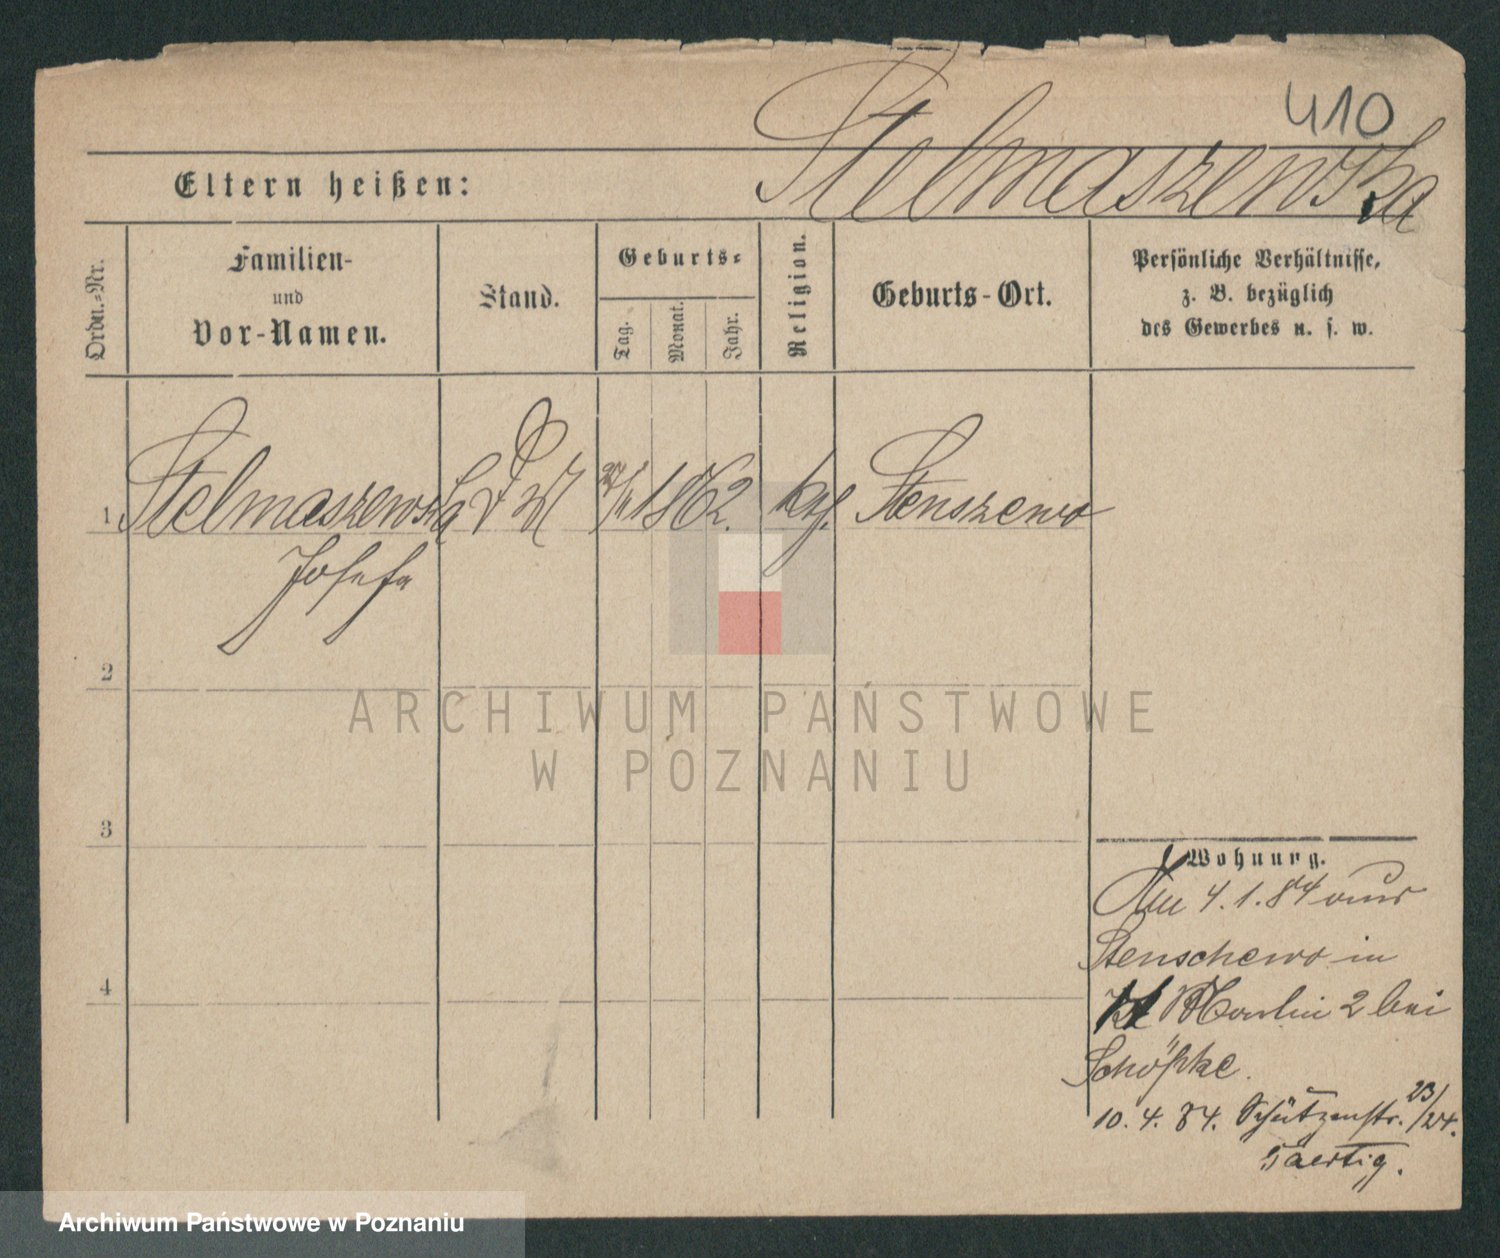 410
Stelmaszewska
Eltern heißen:
Ordn.-Nr.
Familien-
und
Vor-Namen.
Stand.
Geburts-
Tag.
Monat.
Jahr.
Religion.
Geburts-Ort.
Persönliche Verhältnisse,
z. B. bezüglich
des Gewerbes u. s. w.
1 Stelmaszewska 1862. kth. Stenszewo
Josefa
2
3
4
ARCHIWUM PAŃSTWOWE
W POZNANIU
Wohnung.
4.1.84 aus
Stenschewo in
Martin 2 bei
Schöpke.
10. 4. 84. Schützenstr. 23/24.
Archiwum Państwowe w Poznaniu